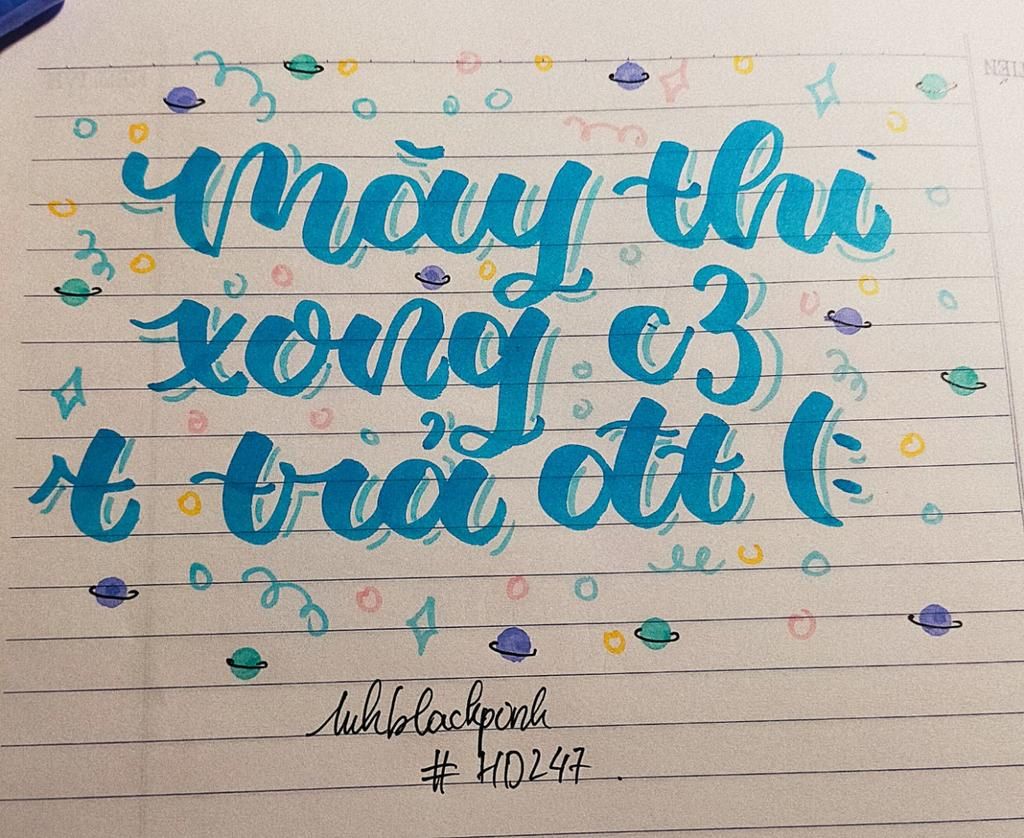 mãy thi
xong c3
t trả đtt (:
luhblackpink
# HD247.